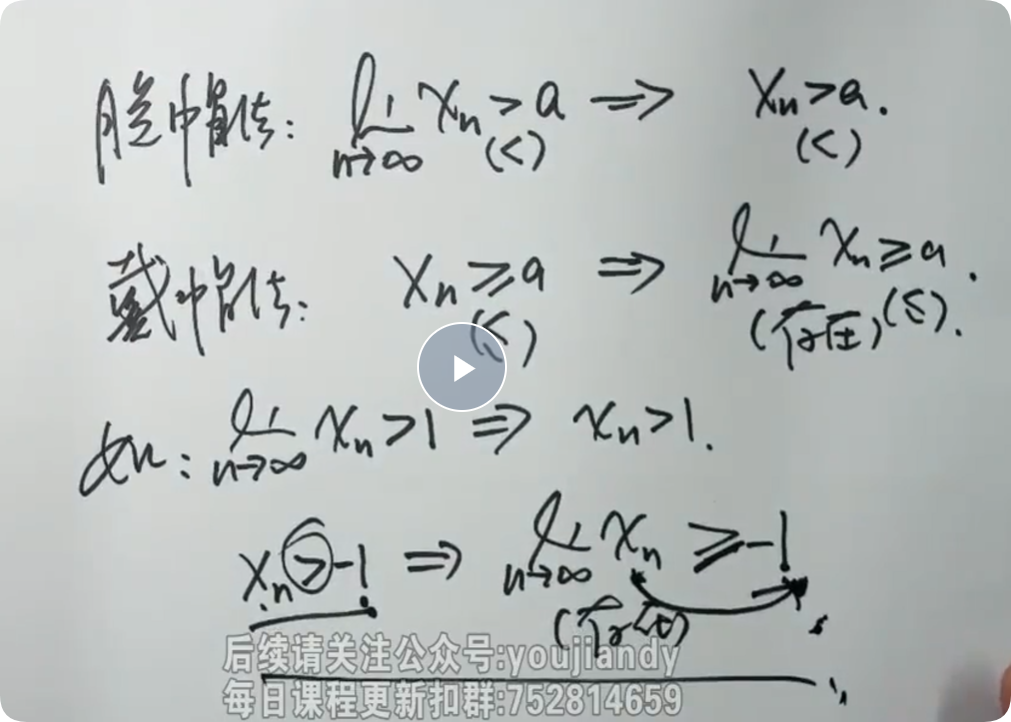 脱帽法: lim n→∞ xn > a ⇒ xn > a.
(<) (<)
戴帽法: xn ≥ a ⇒ lim n→∞ xn ≥ a.
(≤) (存在) (≤).
如: lim n→∞ xn > 1 ⇒ xn > 1.
xn > -1 ⇒ lim n→∞ xn ≥ -1
(存在)
后续请关注公众号:youjiandy
每日课程更新扣群:752814659